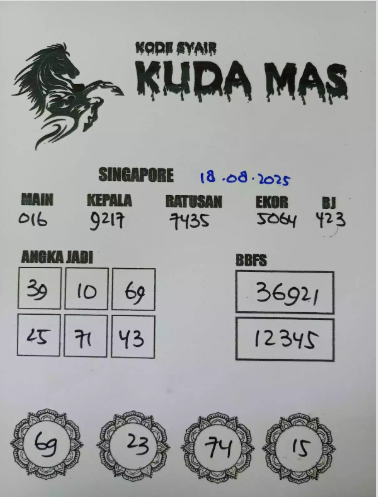 KODE SYAIR
KUDA MAS
SINGAPORE 18.08.2025
MAIN KEPALA RATUSAN EKOR BJ
016 9217 7435 5064 423
ANGKA JADI BBFS
39 10 69 36921
25 71 43 12345
69 23 74 15